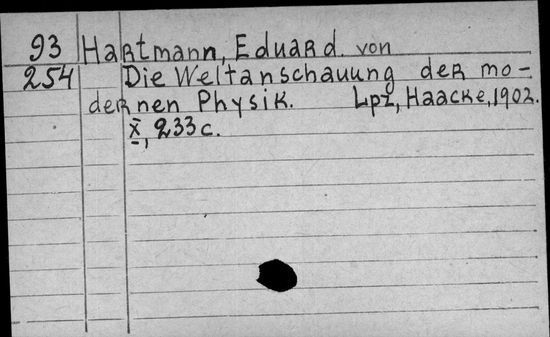 93 Hartmann, Eduard von
254 Die Weltanschauung der mo-
dernen Physik. Lpz, Haacke, 1902.
X, 233 c.